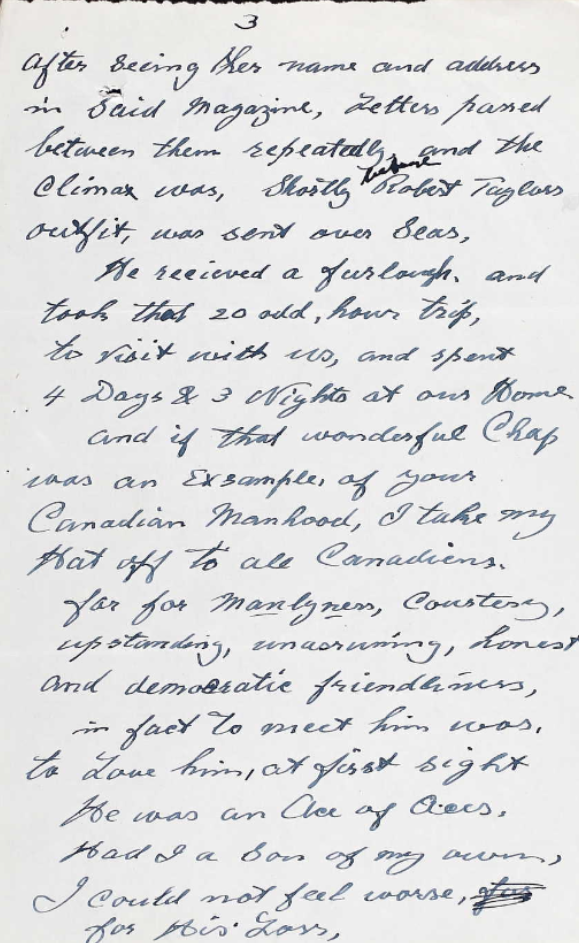 3
After seeing Her name and address
in Said Magazine, Letters passed
between them repeatedly and the
Climax was, Shortly before Robert Taylors
outfit, was sent over Seas,
He recieved a furlough. and
took that 20 odd, hour trip,
to visit with us, and spent
4 Days & 3 Nights at our Home
and if that wonderful Chap
was an Exsample, of your
Canadian Manhood, I take my
Hat off to all Canadiens.
for for Manlyness, Courtesy,
upstanding, unassuming, honest
and democratic friendliness,
in fact to meet him was,
to Love him, at first sight
He was an Ace of Aces.
Had I a Son of my own,
I could not feel worse,
for His Loss,